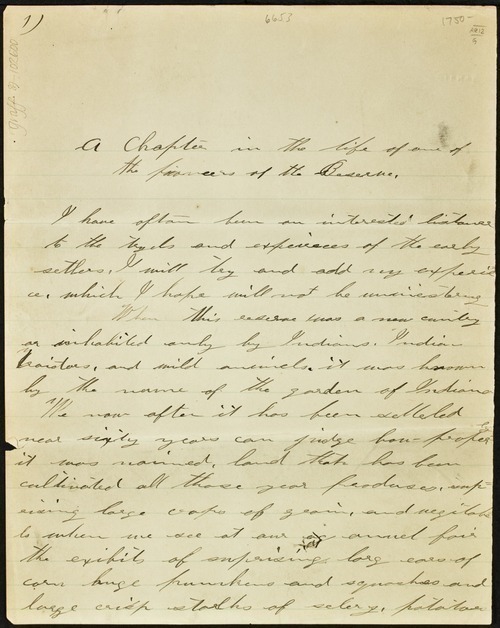 1)
6653
1750-
A Chapter in the life of one of
the pioneers of the Reserve.
I have often been an interested listener
to the tryels and expiences of the early
settlers. I will try and add my experi
ce. which I hope will not be uninteresting
When this reserve was a new cuntry
or inhabited only by Indians. Indian
traistors, and wild animels. it was known
by the name of the garden of Indiana
We now after it has been setteled
near sixty years can judge how proper
it was naimed. land that has been
cultivated all those year produses. sup
rising large crops of grain. and vegitab
ls when we see at our annuel fair
the exibits of suprising larg ears of
corn huge pumkens and squashes and
large crisp stalks of selery. potatoes